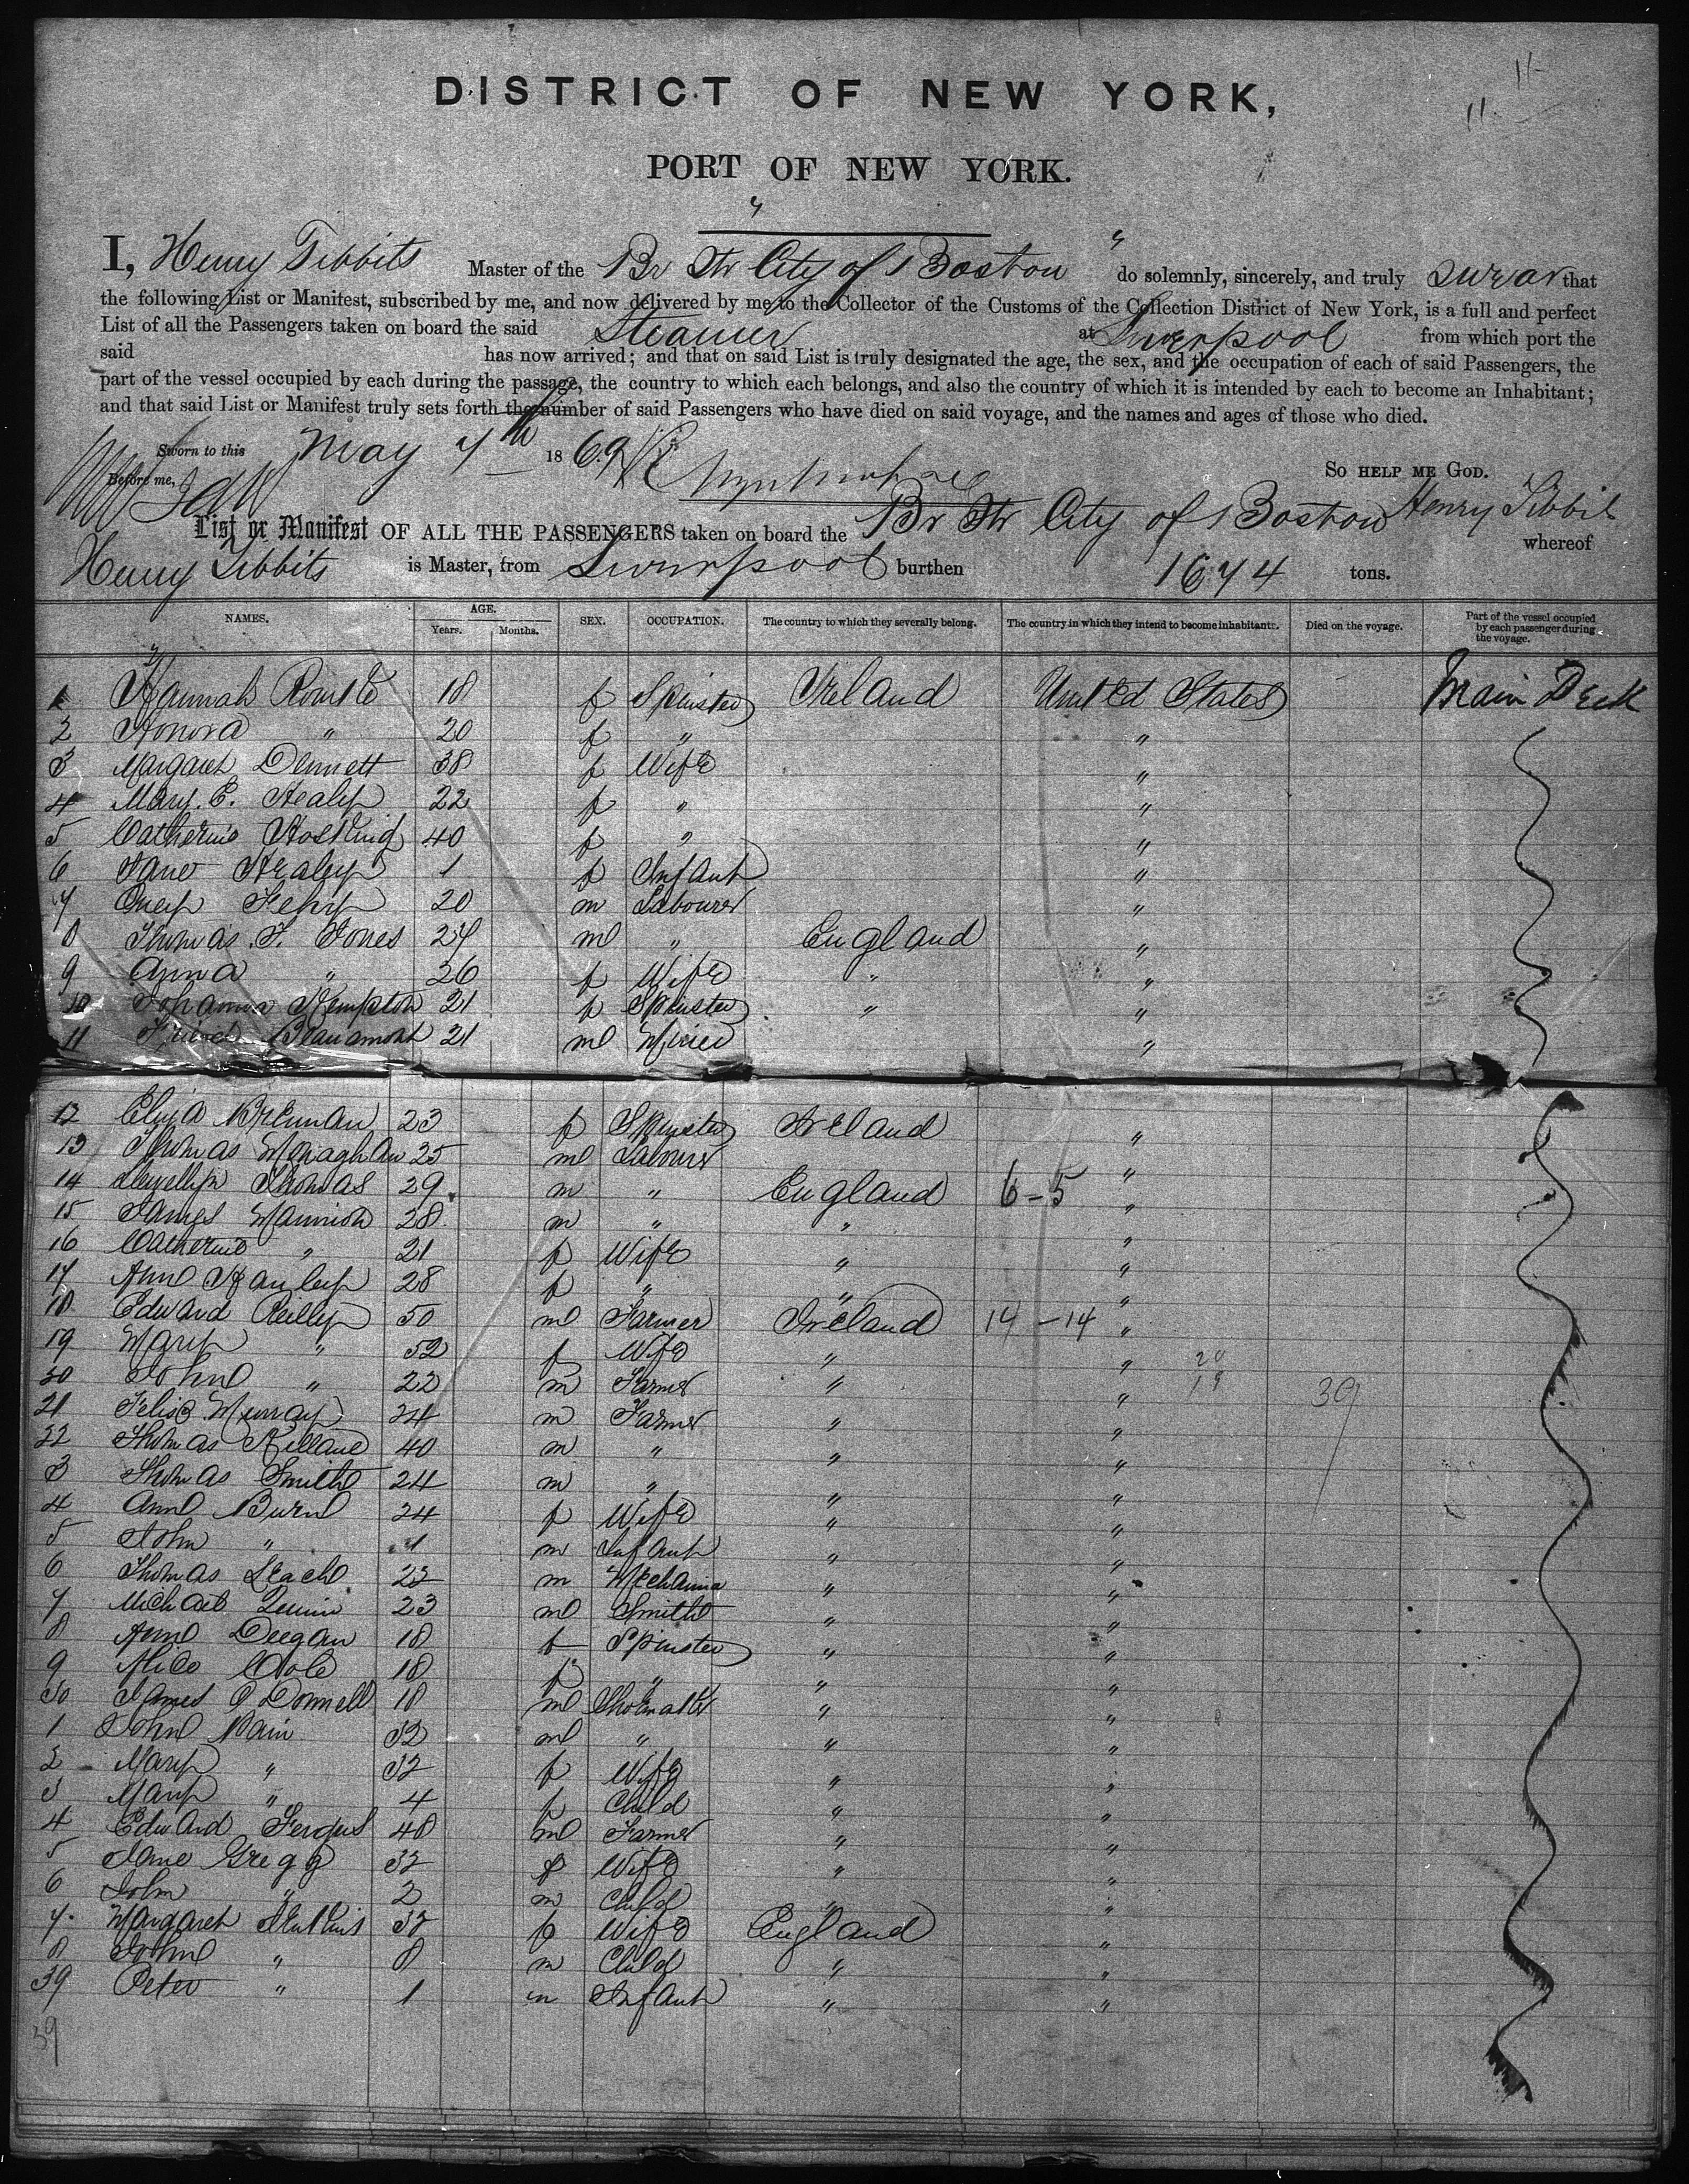 11-
11-
DISTRICT OF NEW YORK,
PORT OF NEW YORK.
I, Henry Tibbits Master of the Br Str City of Boston do solemnly, sincerely, and truly swear that
the following List or Manifest, subscribed by me, and now delivered by me to the Collector of the Customs of the Collection District of New York, is a full and perfect
List of all the Passengers taken on board the said Steamer at Liverpool from which port the
said has now arrived; and that on said List is truly designated the age, the sex, and the occupation of each of said Passengers, the
part of the vessel occupied by each during the passage, the country to which each belongs, and also the country of which it is intended by each to become an Inhabitant;
and that said List or Manifest truly sets forth the number of said Passengers who have died on said voyage, and the names and ages of those who died.
Sworn to this May 7th 1869
So help me God.
Before me,
Henry Tibbits
List or Manifest OF ALL THE PASSENGERS taken on board the Br Str City of Boston whereof
Henry Tibbits is Master, from Liverpool burthen 1674 tons.
NAMES. AGE. Years. Months. SEX. OCCUPATION. The country to which they severally belong. The country in which they intend to become inhabitants. Died on the voyage. Part of the vessel occupied by each passenger during the voyage.
1 Hannah 18 f Spinster Ireland United States Main Deck
2 Honora " 20 f " "
3 Margaret Dennett 38 f Wife "
4 Mary. E. Healy 22 f " "
5 Catherine Hosking 40 f " "
6 Jane Healey 1 f Infant "
7 20 m Labourer "
8 Thomas. J. Jones 27 m " England "
9 Anna " 26 f Wife " "
10 Johanna Kempston 21 f Spinster " "
11 Beausmont 21 m Miner "
12 Eliza Brennan 23 f Spinster Ireland "
13 Thomas Monaghan 25 m Labourer "
14 Llewellyn Thomas 29 m " England 6-5 "
15 James Mannion 28 m " " "
16 Catherine " 21 f Wife " "
17 Ann Hanley 28 f " " "
18 Edward Reilly 50 m Farmer Ireland 14-14 "
19 Mary " 52 f Wife " " 20
20 John " 22 m Farmer " " 19 39
21 Murray 24 m Farmer " "
22 Thomas Killane 40 m " " "
3 Thomas Smith 24 m " " "
4 Ann Burn 24 f Wife " "
5 John " 1 m Infant " "
6 Thomas Leach 22 m Mechanic " "
7 Michael Quinn 23 m Smith " "
8 Ann Deegan 18 f Spinster " "
9 Alice Cole 18 f " " "
30 James O Donnell 18 m Shoemaker " "
1 John Nain 32 m " " "
2 Mary " 32 f Wife " "
3 Mary " 4 f Child " "
4 Edward Fergus 48 m Farmer " "
5 Jane Gregg 32 f Wife " "
6 John " 2 m Child " "
7 Margaret Jenkins 32 f Wife England "
8 John " 8 m Child " "
39 Peter " 1 m Infant " "
39